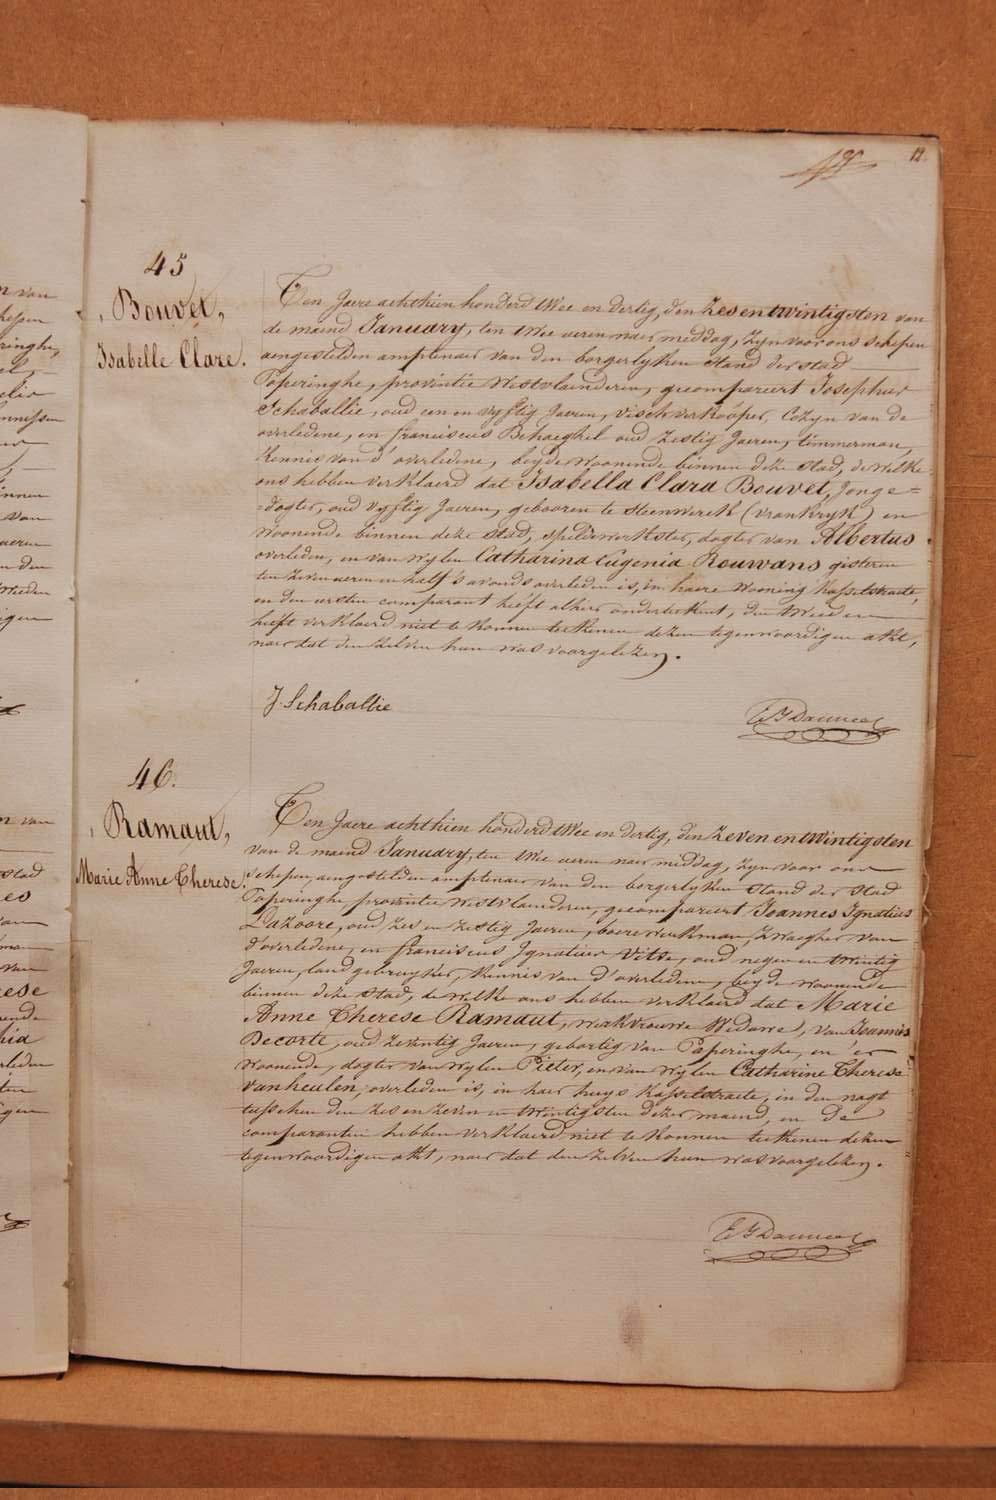 12.
45
Bouvet,
Isabelle Clare.
Ten Jaere achthien honderd twee en dertig, den Zesentwintigsten van
de maend January, ten twee ueren naer middag, zyn voor ons schepen
aengestelden amptenaer van den borgerlyken stand der stad
Poperinghe, provintie Westvlaenderen, gecompareert Josephus
Schaballie, oud een en vyftig Jaeren, vischverkooper, Cozyn van de
overledene, en franciscus Behaeghel oud zestig Jaeren, timmerman,
Kennis van d'overledene, beyde woonende binnen deze stad, de welke
ons hebben verklaerd dat Isabella Clara Bouvet, Jonge=
=dogter, oud vyftig Jaeren, gebooren te Steenwerck (vrankryk) en
woonende binnen deze stad, speldewerkster, dogter van Albertus
overleden, en van wylen Catharina Eugenia Rouvans gisteren
ten zeven ueren en half s'avonds overleden is, in haere wooning Kasselstraete,
en den eersten comparant heeft alhier onderteekent, den tweeden
heeft verklaerd niet te konnen teekenen dezen tegenwoordigen akt,
naer dat den zelven hun was voorgelezen.
J. Schaballie
46.
Ramaut,
Marie Anne Therese.
Ten Jaere achthien honderd twee en dertig, den Zeven entwintigsten
van de maend January, ten twee ueren naer middag, zyn voor ons
Schepen, aengestelden amptenaer van den borgerlyken stand der stad
Poperinghe provintie Westvlaenderen, gecompareert Joannes Ignatius
Lazoore, oud zes en zestig Jaeren, boerewerkman, Zwaegher van
d'overledene, en franciscus Ignatius Vitse, oud negen en twintig
Jaeren, landgebruyker, Kennis van d'overledene, beyde woonende
binnen deze stad, de welke ons hebben verklaerd dat Marie
Anne Therese Ramaut, werkvrouwe Weduwe, van Joannes
Decorte, oud zeventig Jaeren, gebortig van Poperinghe, en er
woonende, dogter van wylen Pieter, en van wylen Catharine Therese
vanheulen, overleden is, in haer huys Kasselstraete, in den nagt
tusschen den zes en zeven en twintigsten dezer maend, en de
comparanten hebben verklaerd niet te konnen teekenen dezen
tegenwoordigen akt, naer dat den zelven hun was voorgelezen.